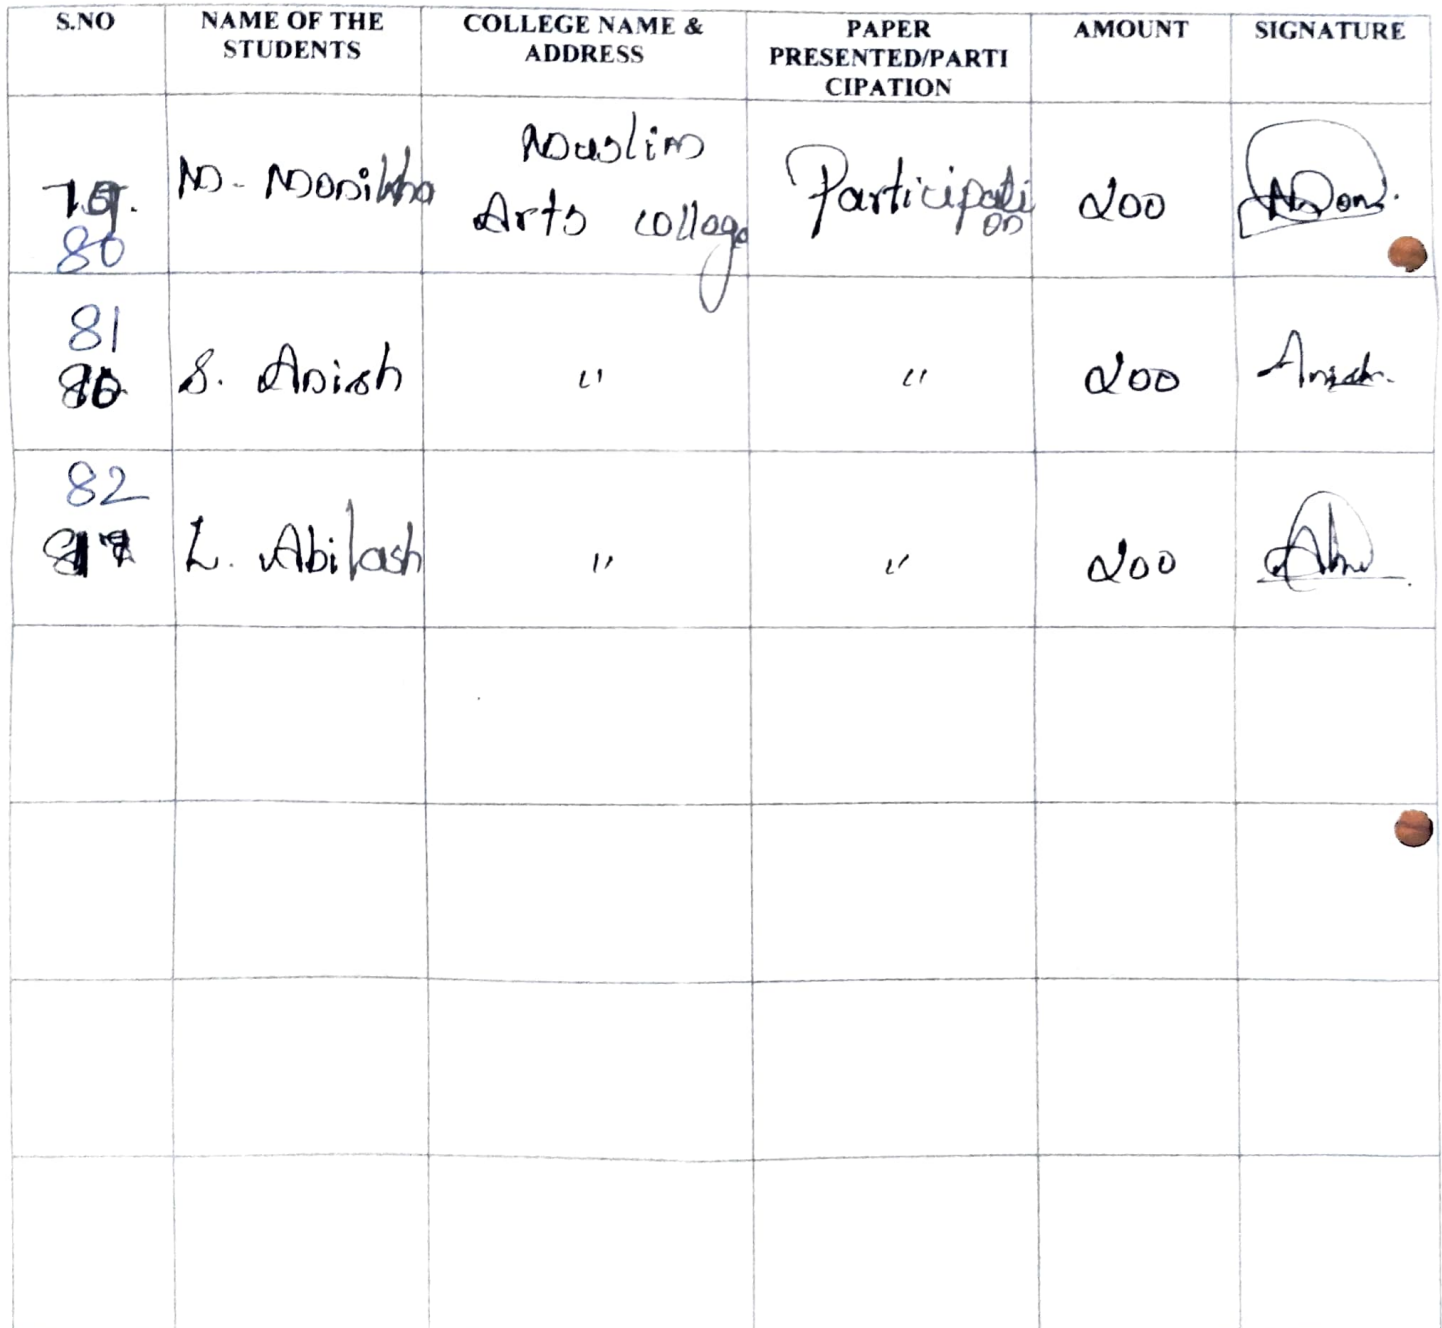 S.NO NAME OF THE STUDENTS COLLEGE NAME & ADDRESS PAPER PRESENTED/PARTICIPATION AMOUNT SIGNATURE
80 M. Monikha Muslim Arts college Participation 200
81 S. Anish " " 200 Anish.
82 L. Abilash " " 200